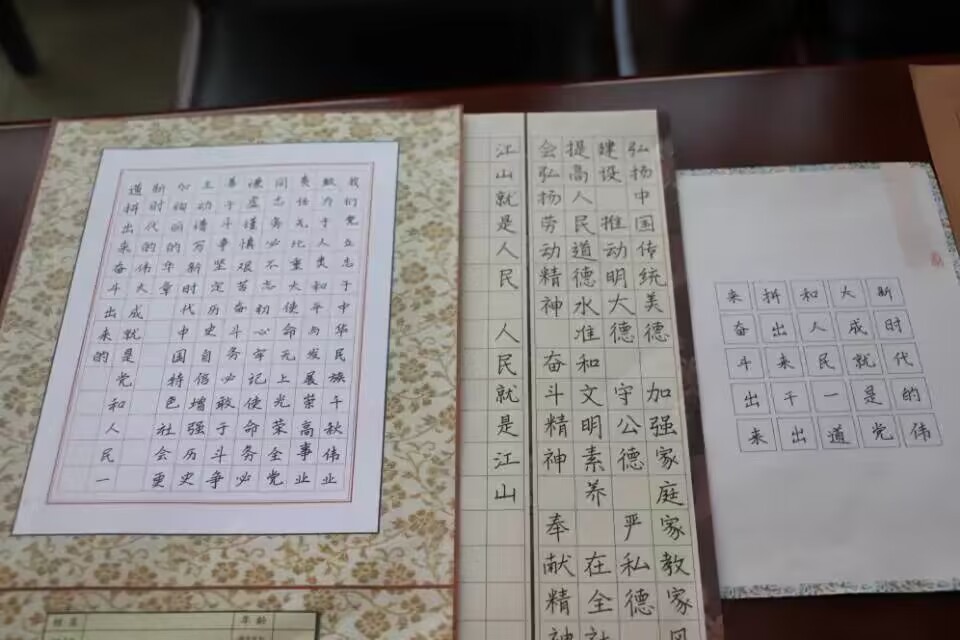 我们党立志于中华民族千秋伟业
致力于人类和平与发展崇高事业
责任无比重大使命无上光荣全党
同志务必不忘初心牢记使命务必
谦虚谨慎艰苦奋斗务必敢于斗争
善于斗争坚定历史自信增强历史
主动谱写新时代中国特色社会更
加绚丽的华章
新时代的伟大成就是党和人民一
道拼出来奋斗出来的
姓名 年龄
弘扬中国传统美德 加强家庭家教家风
建设 推动明大德 守公德 严私德
提高人民道德水准和文明素养 在全社
会弘扬劳动精神 奋斗精神 奉献精神
江山就是人民 人民就是江山
新时代的伟
大成就是党
和人民一道
拼出来干出
来奋斗出来